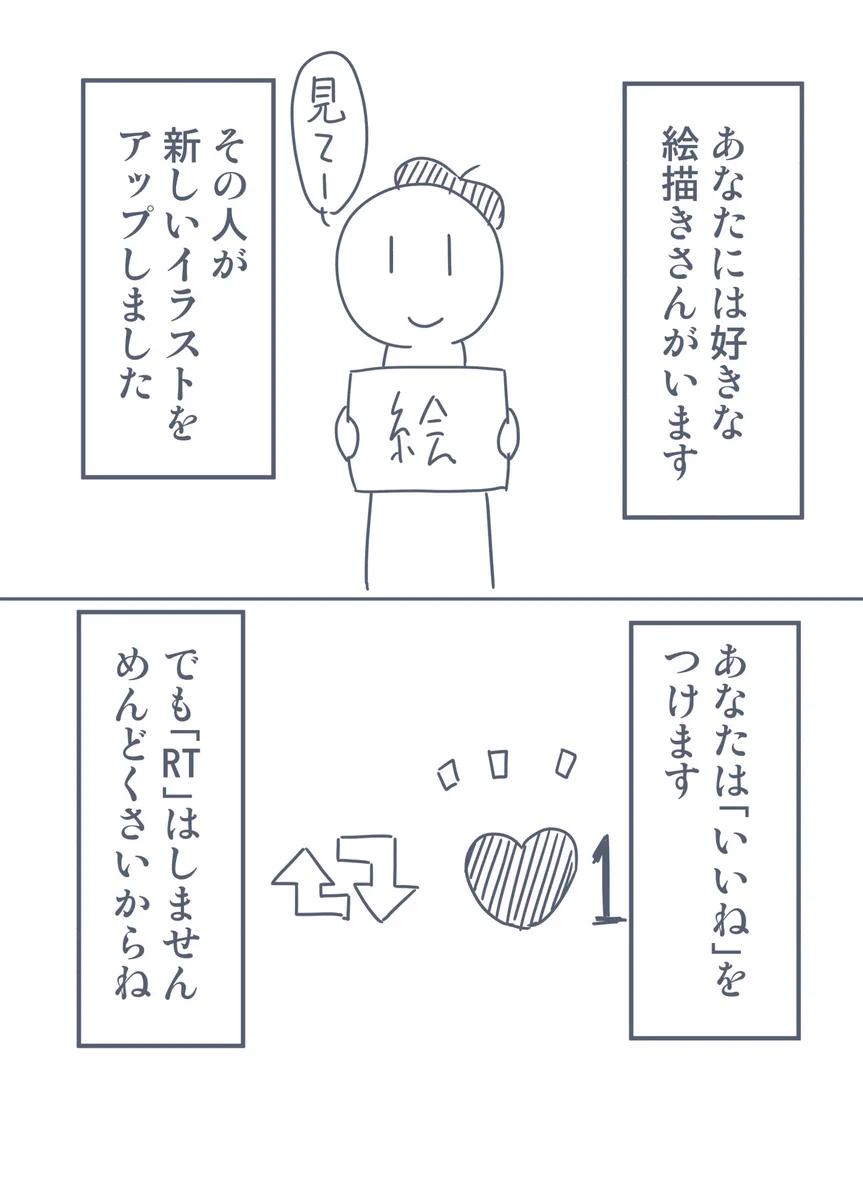 あなたには好きな
絵描きさんがいます
見てー
絵
その人が
新しいイラストを
アップしました
あなたは「いいね」を
つけます
1
でも「RT」はしません
めんどくさいからね